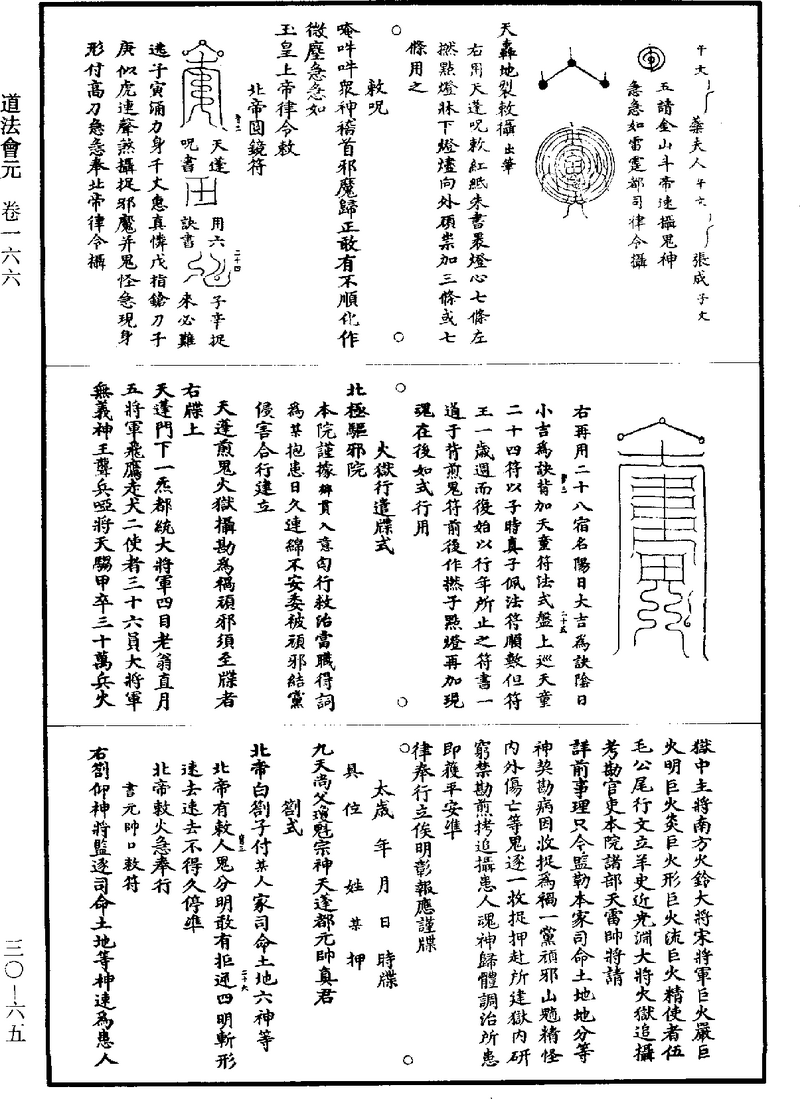 道法會元　卷一六六
三〇—六五
午文　藥夫人　午文　張成子文
五請金山斗帝速攝鬼神
急急如雷霆都司律令攝
天轟地裂敕攝　出筆
右用天蓬呪敕紅紙朱書裹燈心七條左
撚點燈牀下燈爐向外頑祟加三條或七
條用之
敕呪
唵吽吽眾神稽首邪魔歸正敢有不順化作
微塵急急如
玉皇上帝律令敕
北帝圓鏡符
天蓬　用六　子辛捉
呪書　訣書　來必難
逃子寅涌力身千丈惠真憐戊指鎗刀子
庚似虎連聲煞攝捉邪魔并鬼怪急現身
形付高刀急急奉北帝律令攝
右再用二十八宿名陽日大吉為訣陰日
小吉為訣背加天童符法式盤上巡天童
二十四符以子時真子佩法符順數但符
王一歲週而復始以行年所止之符書一
道于背煎鬼符前後作撚子點燈再加現
魂在後如式行用
火獄行遣牒式
北極驅邪院
本院謹據鄉貫入意旬行救治當職得詞
為某抱患日久連綿不安委被頑邪結黨
侵害合行建立
天蓬煎鬼火獄攝勘為禍頑邪須至牒者
右牒上
天蓬門下一炁都統大將軍四目老翁直月
五將軍飛鷹走犬二使者三十六員大將軍
無義神王聾兵啞將天騶甲卒三十萬兵火
獄中主將南方火鈴大將宋將軍巨火嚴巨
火明巨火炎巨火形巨火流巨火精使者伍
毛公尾行文立羊史近光淵大將火獄追攝
考勘官吏本院諸部天雷帥將請
詳前事理只今監勒本家司命土地地分等
神契勘病因收捉為禍一黨頑邪山魈精怪
內外傷亡等鬼逐一枚捉押赴所建獄內研
窮禁勘煎拷追攝患人魂神歸體調治所患
即獲平安準
律奉行立俟明彰報應謹牒
太歲　年　月　日　時牒
具位　姓　某　押
九天尚父瓊魁宗神天蓬都元帥真君
劄式
北帝白劄子付某人家司命土地六神等
北帝有敕人鬼分明敢有拒逆四明斬形
速去速去不得久停準
北帝敕火急奉行
書元帥口敕符
右劄仰神將監逐司命土地等神速為患人